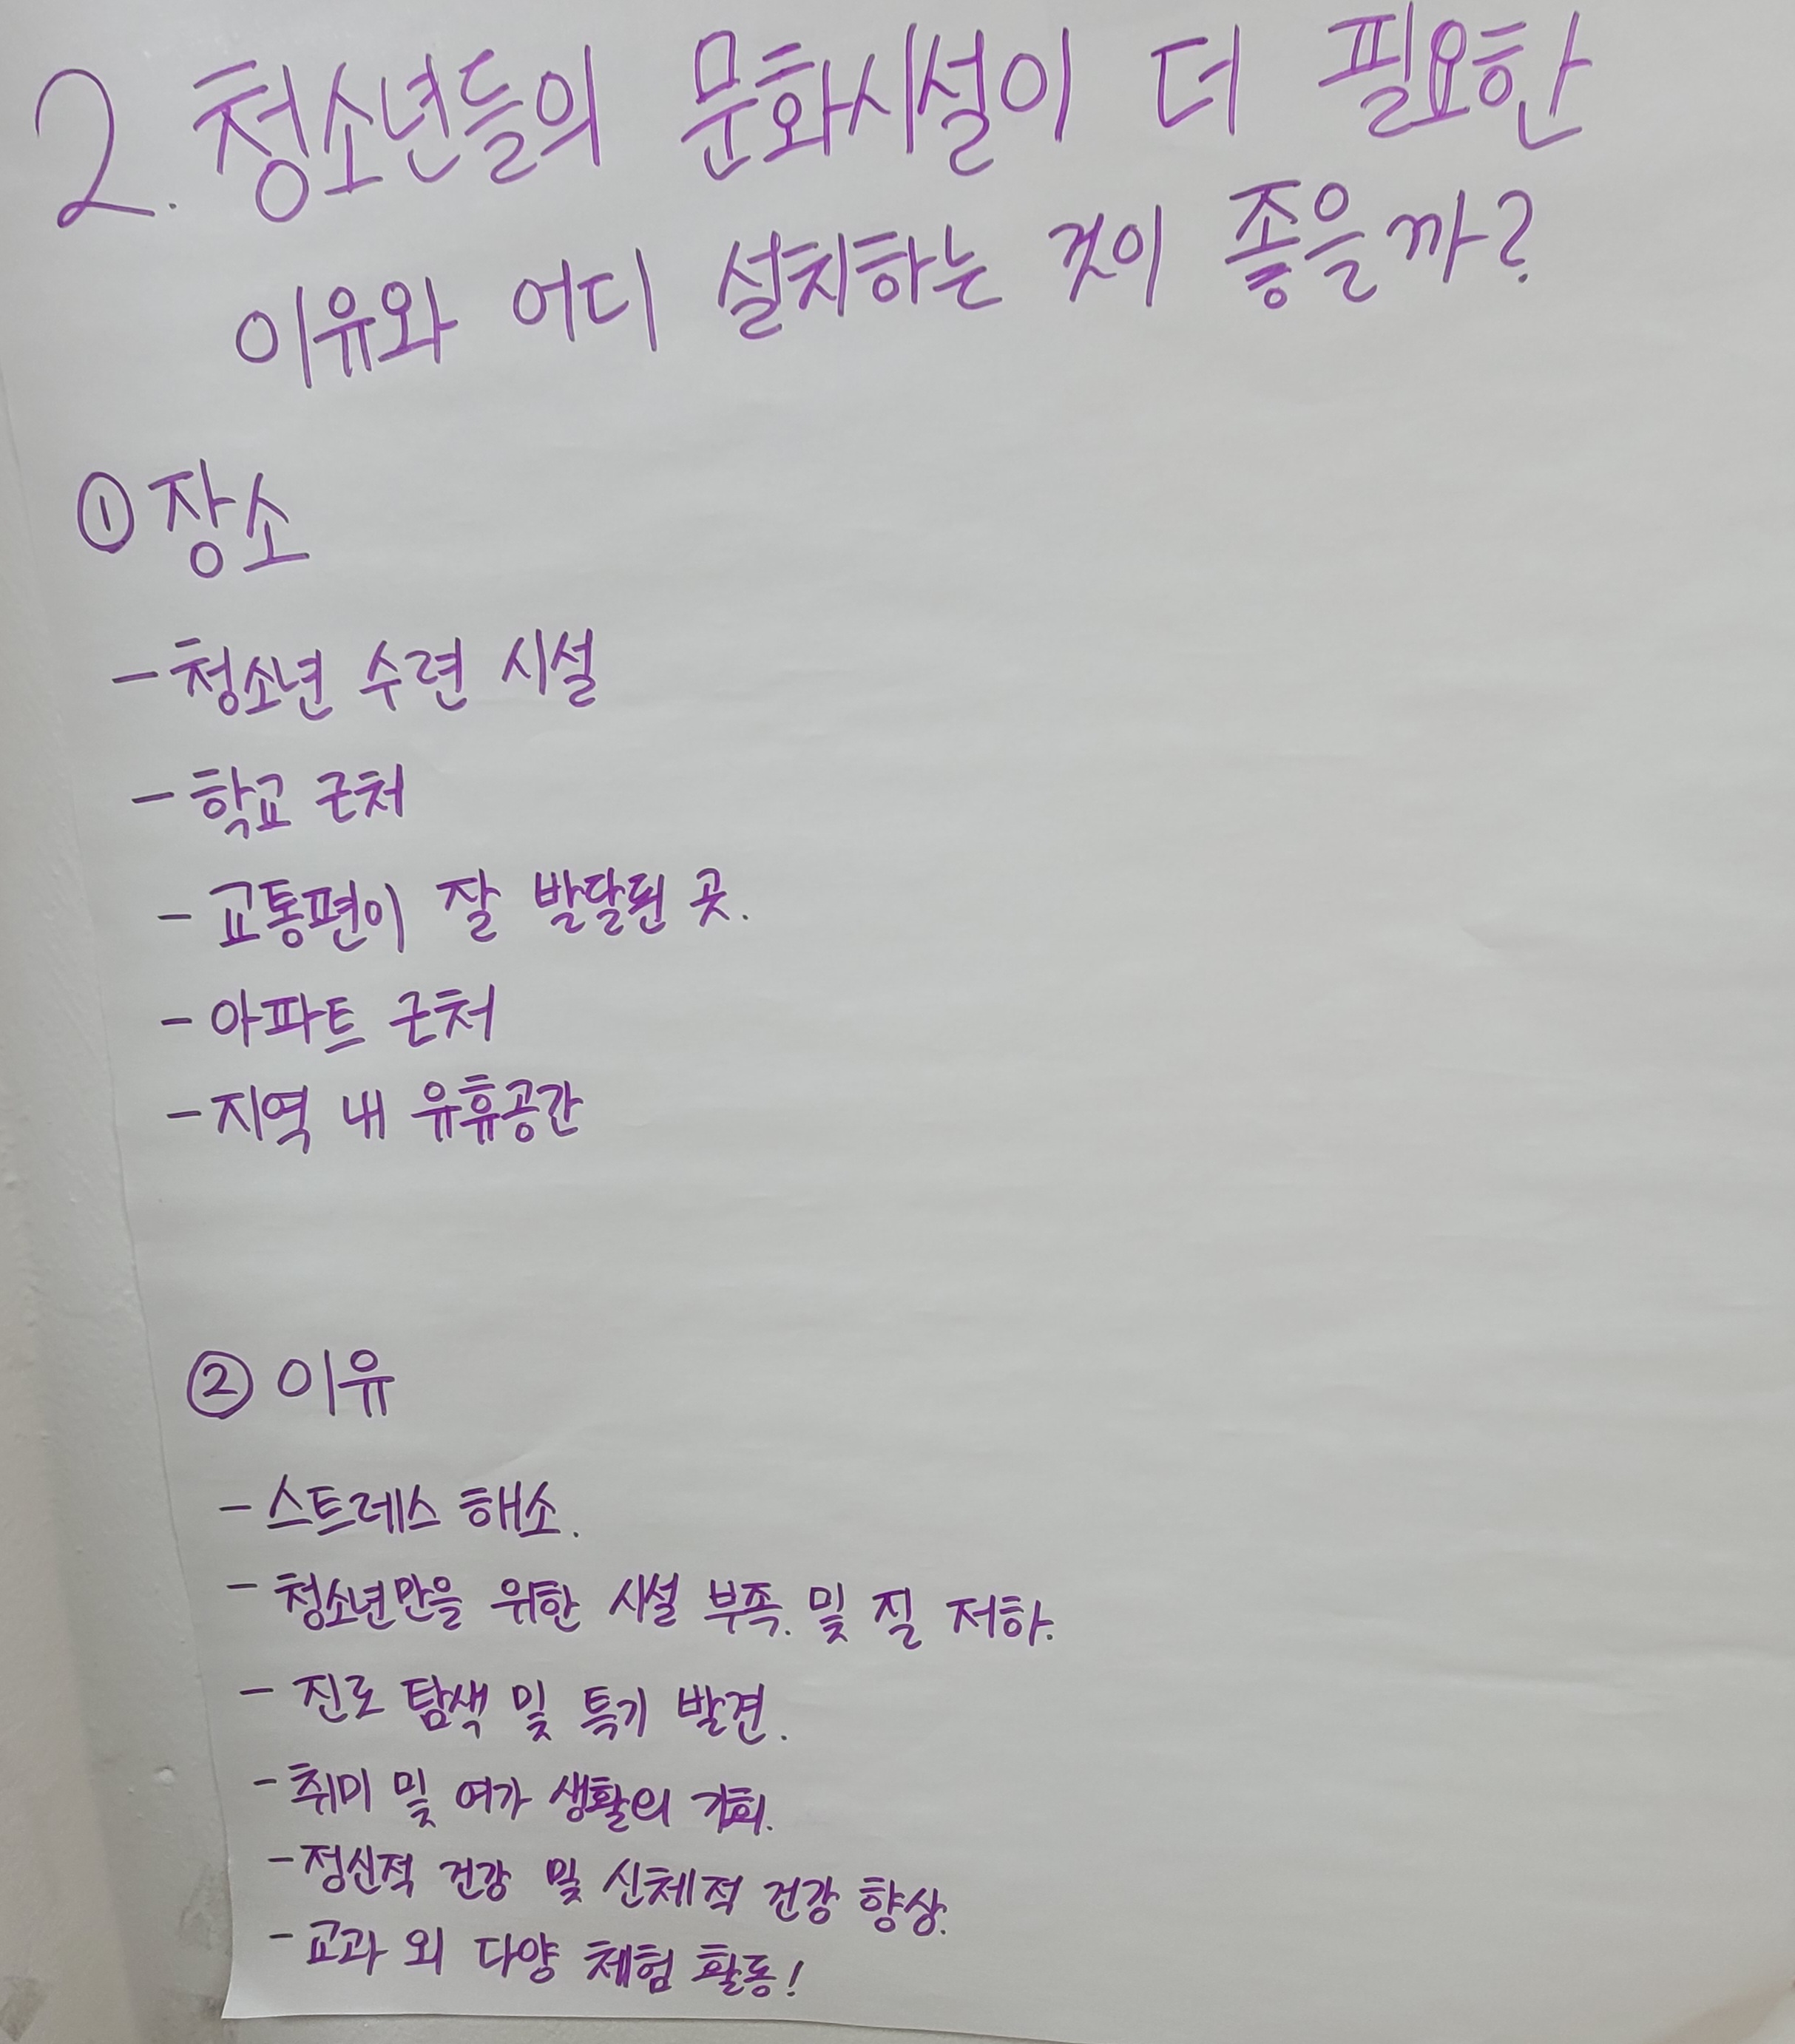 2. 청소년들의 문화시설이 더 필요한
이유와 어디 설치하는 것이 좋을까?
① 장소
- 청소년 수련 시설
- 학교 근처
- 교통편이 잘 발달된 곳.
- 아파트 근처
- 지역 내 유휴공간
② 이유
- 스트레스 해소.
- 청소년만을 위한 시설 부족. 및 질 저하.
- 진로 탐색 및 특기 발견.
- 취미 및 여가 생활의 기회.
- 정신적 건강 및 신체적 건강 향상.
- 교과 외 다양 체험 활동!